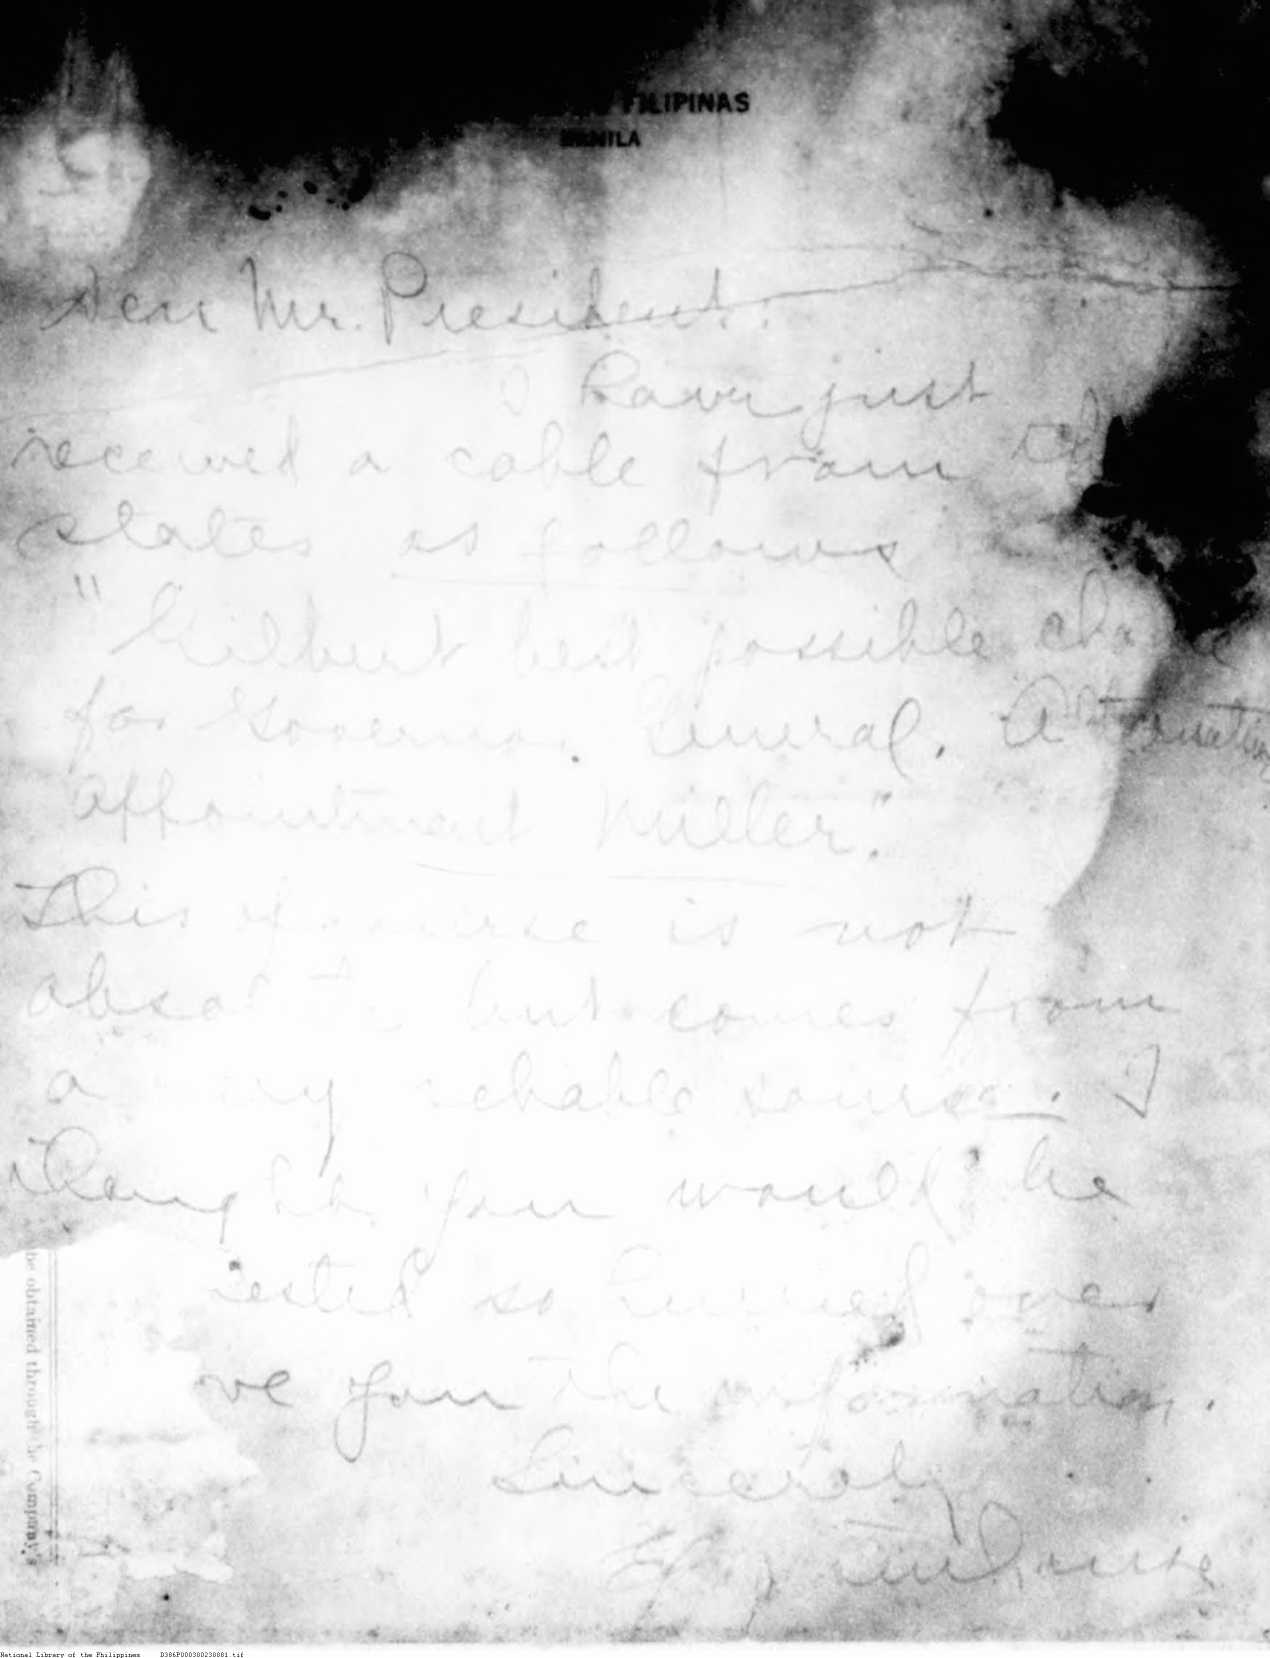 FILIPINAS
MANILA
Dear Mr. President:
I have just
received a cable from the
states as follows
"Gilbert best possible chance
for Governor General. Alternating
appointment Miller."
This of course is not
absolute but comes from
a very reliable source. I
thought you would be
ested so hurried over
ve you the information.
Sincerely
be obtained through the Company's
National Library of the Philippines D386P000300230001.tif